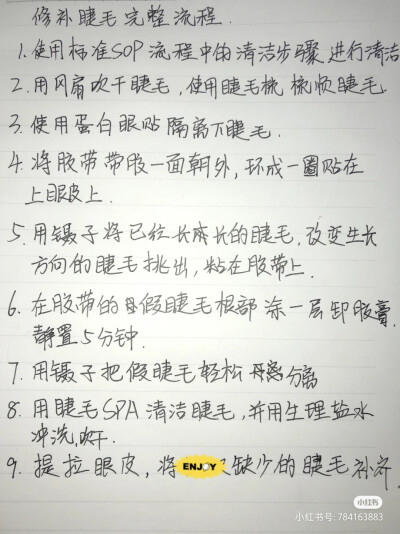 修补睫毛完整流程.
1.使用标准SOP流程中的清洁步骤进行清洁
2.用风扇吹干睫毛,使用睫毛梳梳顺睫毛.
3.使用蛋白眼贴隔离下睫毛.
4.将胶带带胶一面朝外,环成一圈贴在
上眼皮上.
5.用镊子将已经长成长的睫毛,改变生长
方向的睫毛挑出,粘在胶带上.
6.在胶带的假睫毛根部涂一层卸胶膏.
静置5分钟.
7.用镊子把假睫毛轻松分离
8.用睫毛SPA清洁睫毛,并用生理盐水
冲洗,吹干.
9.提拉眼皮,将ENJOY缺少的睫毛补齐.
小红书
小红书号:784163883